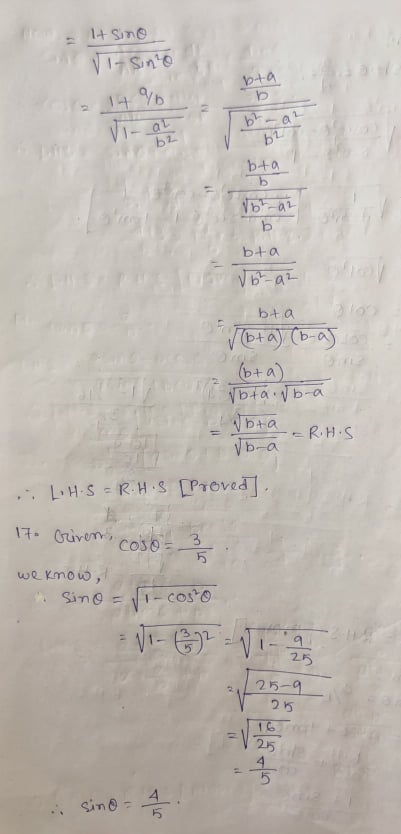 = 1+ sinθ / √(1- sin²θ)
= (1+ a/b) / √(1- a²/b²) = ((b+a)/b) / √((b²-a²)/b²)
= ((b+a)/b) / (√(b²-a²)/b)
= (b+a) / √(b²-a²)
= (b+a) / √((b+a) (b-a))
= (b+a) / (√(b+a) . √(b-a))
= √(b+a) / √(b-a) = R.H.S
∴ L.H.S = R.H.S [Proved].
17. Given, cosθ = 3/5 .
we know,
∴ sinθ = √(1-cos²θ)
= √(1-(3/5)²) = √(1- 9/25)
= √((25-9)/25)
= √(16/25)
= 4/5
∴ sinθ = 4/5 .